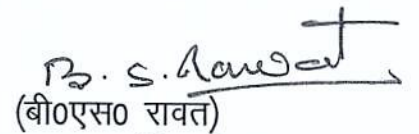 B. S. Rawat
(बी०एस० रावत)